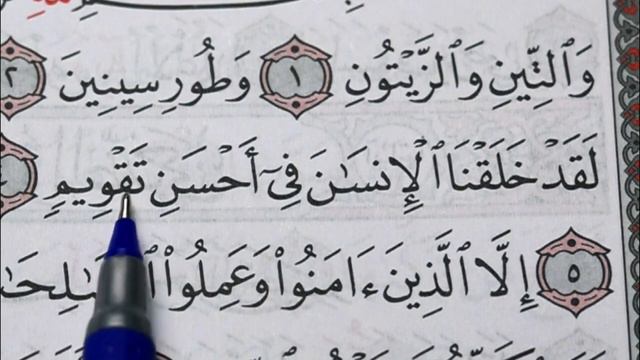 وَٱلتِّينِ وَٱلزَّيْتُونِ ١ وَطُورِ سِينِينَ ٢
لَقَدْ خَلَقْنَا ٱلْإِنسَٰنَ فِىٓ أَحْسَنِ تَقْوِيمٍ ٤
٥ إِلَّا ٱلَّذِينَ ءَامَنُوا۟ وَعَمِلُوا۟